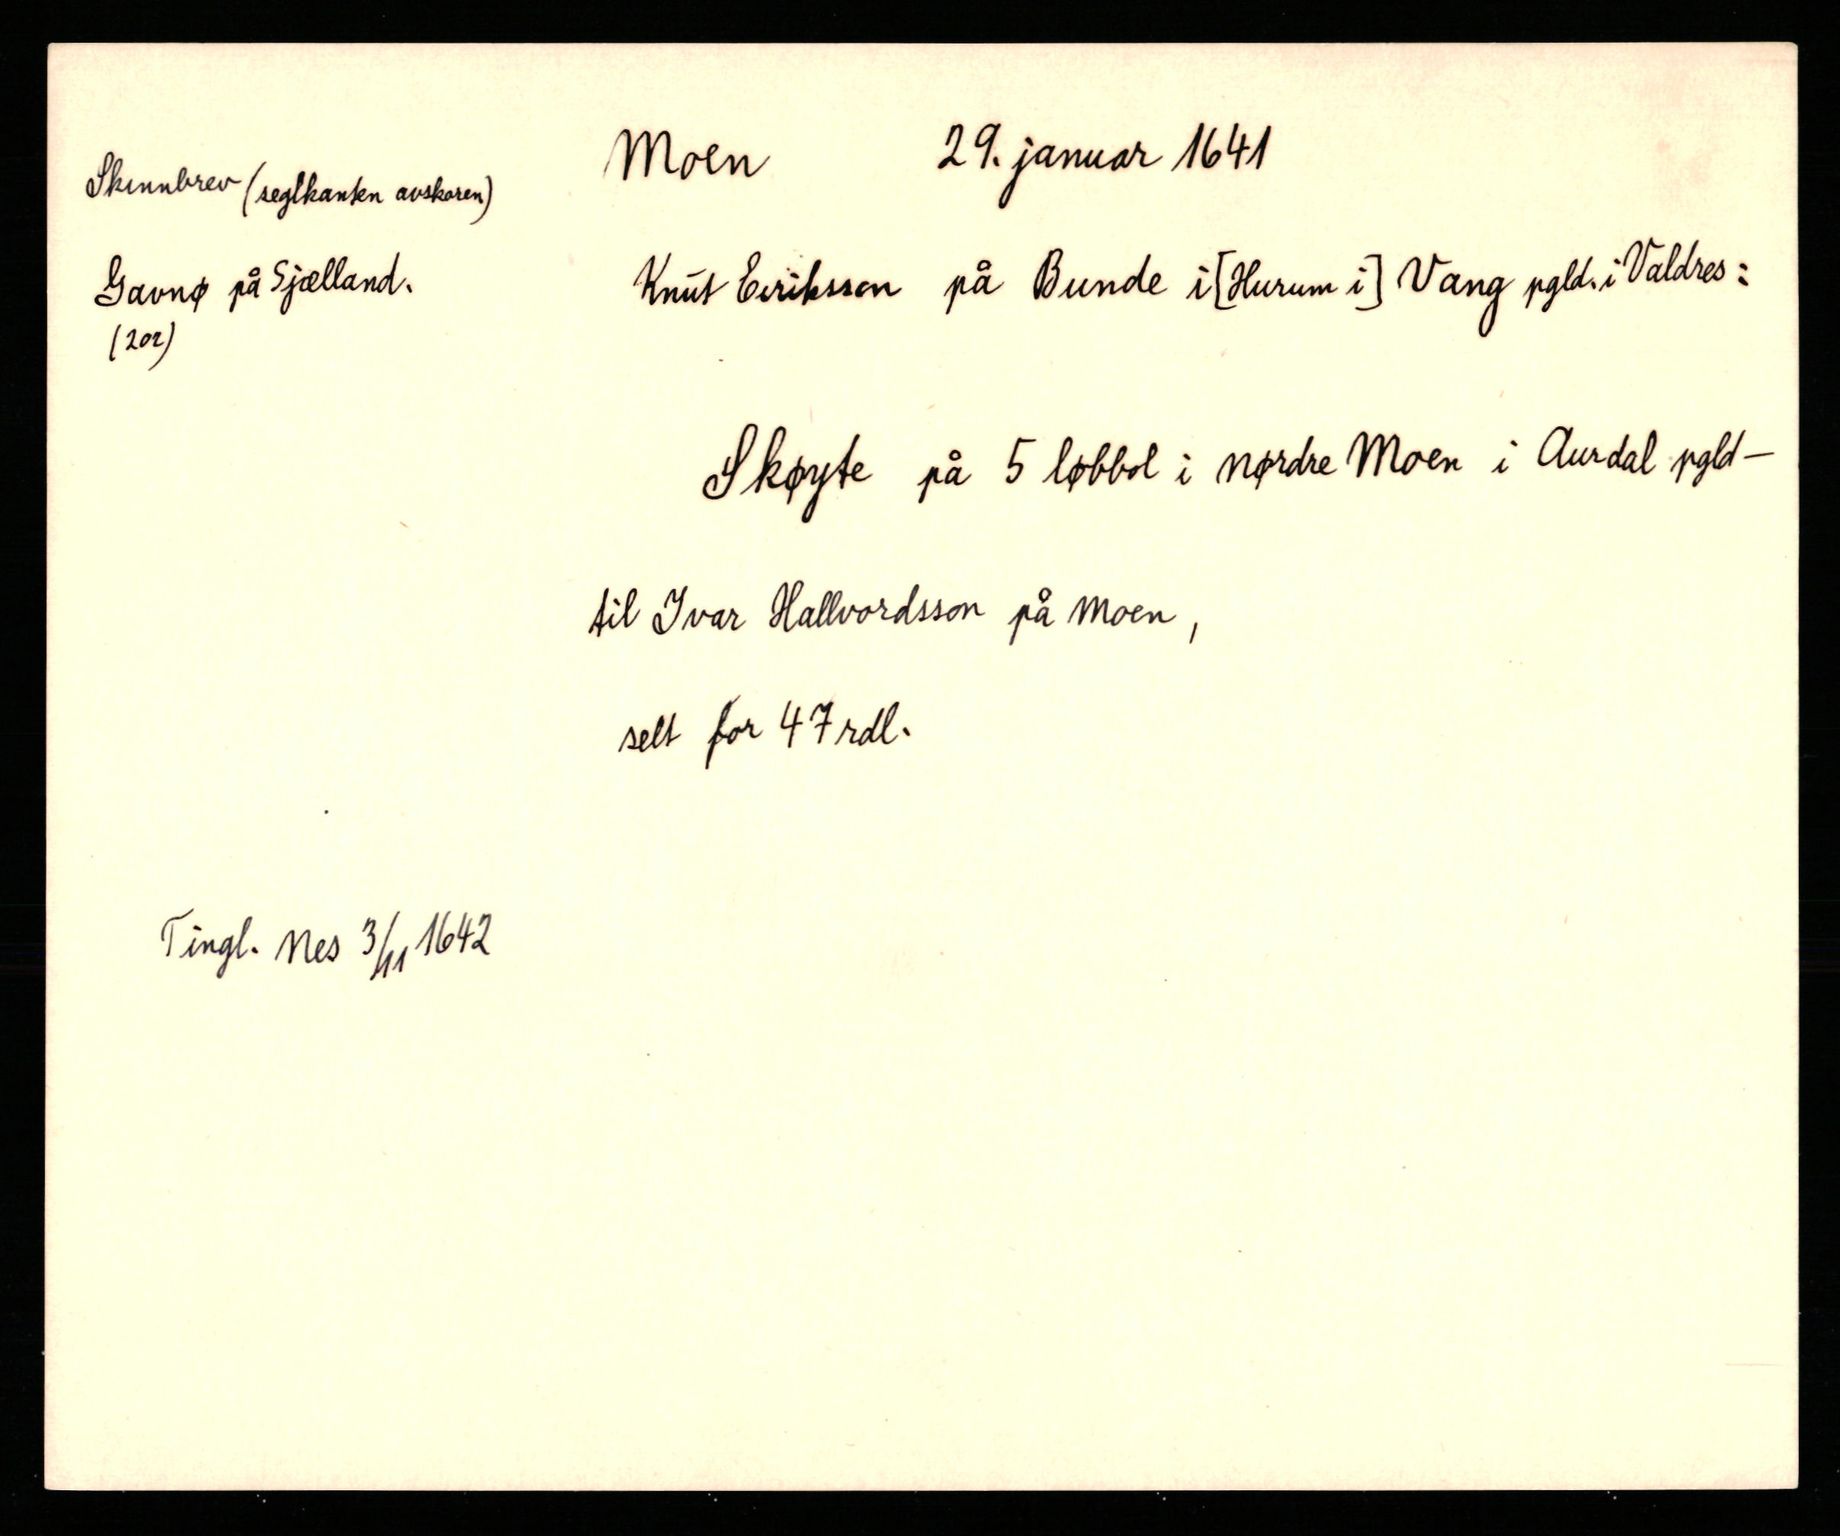 Moen 29. januar 1641
Skinnbrev (seglkanten avskoren)
Gavnø på Sjælland.
(202)
Knut Eiriksson på Bunde i [Hurum i] Vang pgld. i Valdres:
Skøyte på 5 løbbol i nørdre Moen i Aurdal pgld-
til Ivar Hallvordsson på Moen,
selt for 47 rdl.
Tingl. Nes 3/11 1642